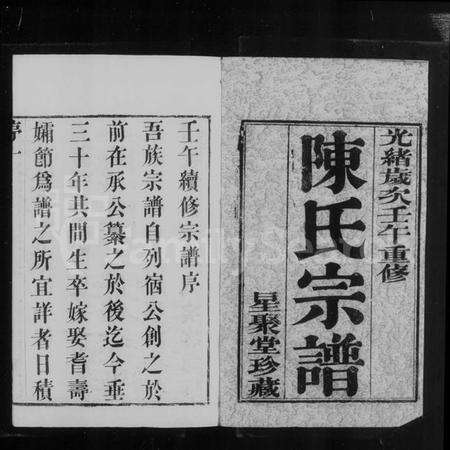 光緒歲次壬午重修
陳氏宗譜
星聚堂珍藏
壬午續修宗譜序
吾族宗譜自列宿公創之於
前在承公纂之於後迄今垂
三十年其間生卒嫁娶耆壽
孀節為譜之所宜詳者日積
序一